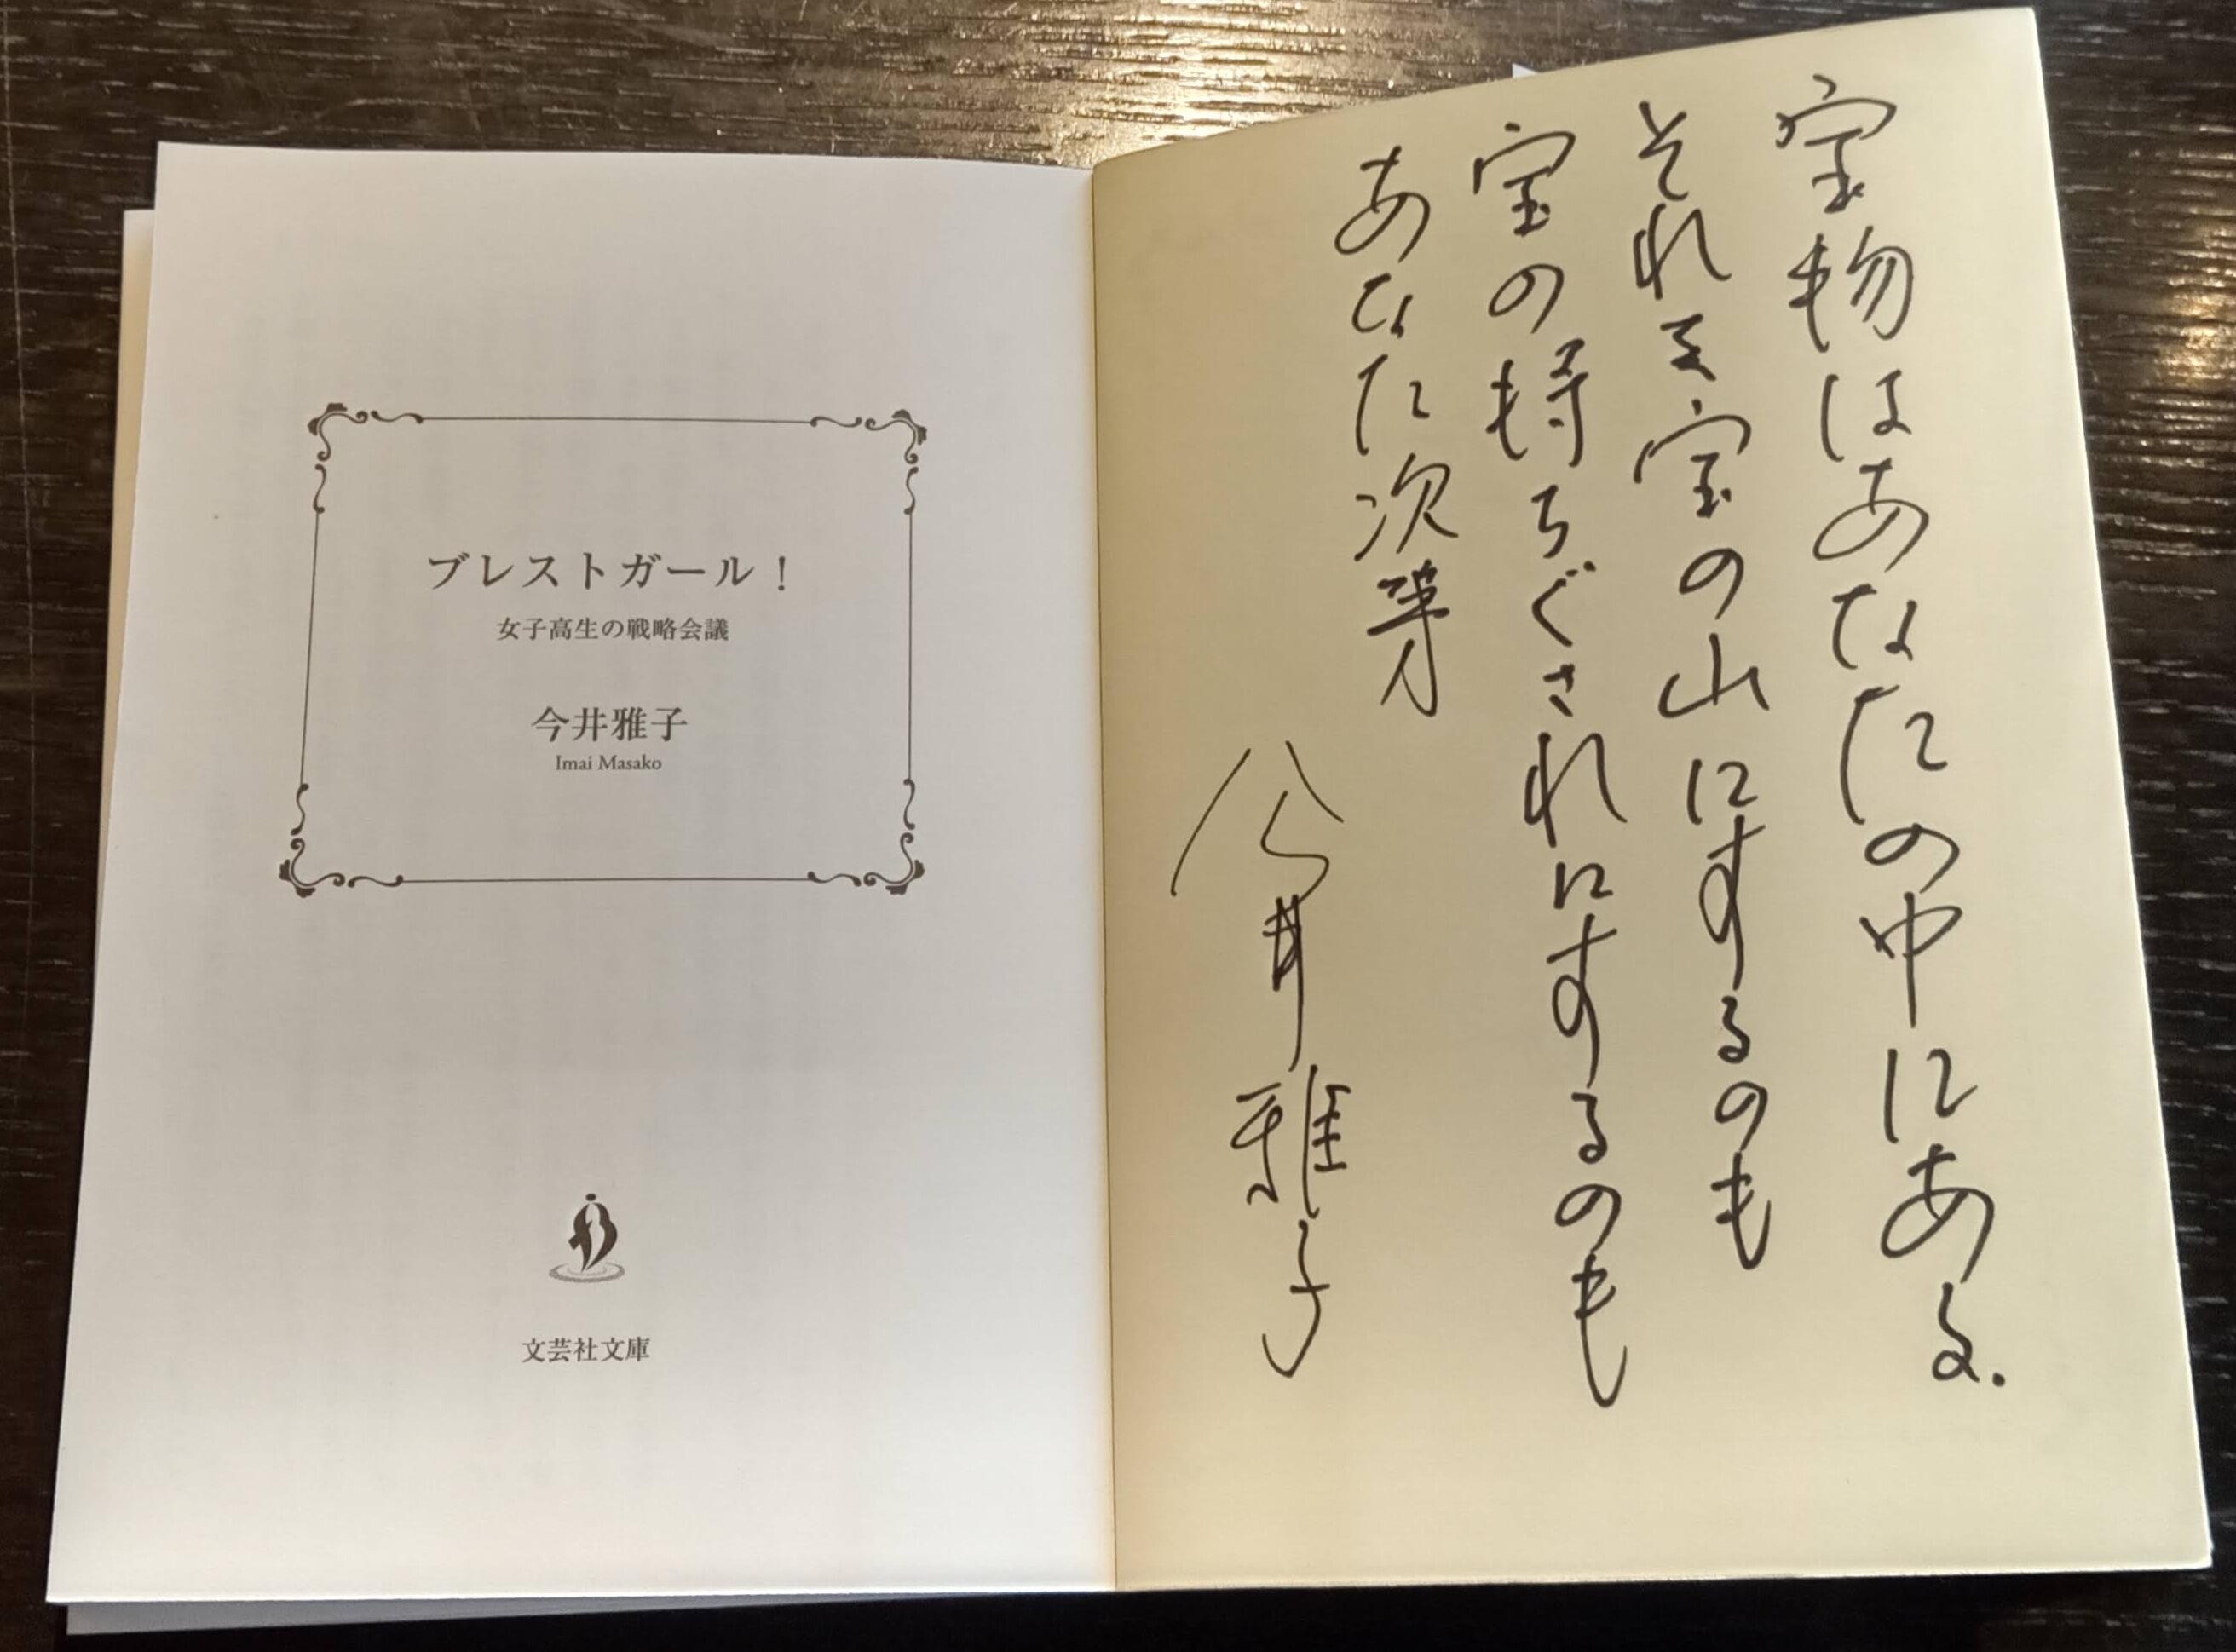 宝物はあなたの中にある.
それを宝の山にするのも
宝の持ちぐされにするのも
あなた次第
今井雅子
ブレストガール！
女子高生の戦略会議
今井雅子
Imai Masako
文芸社文庫